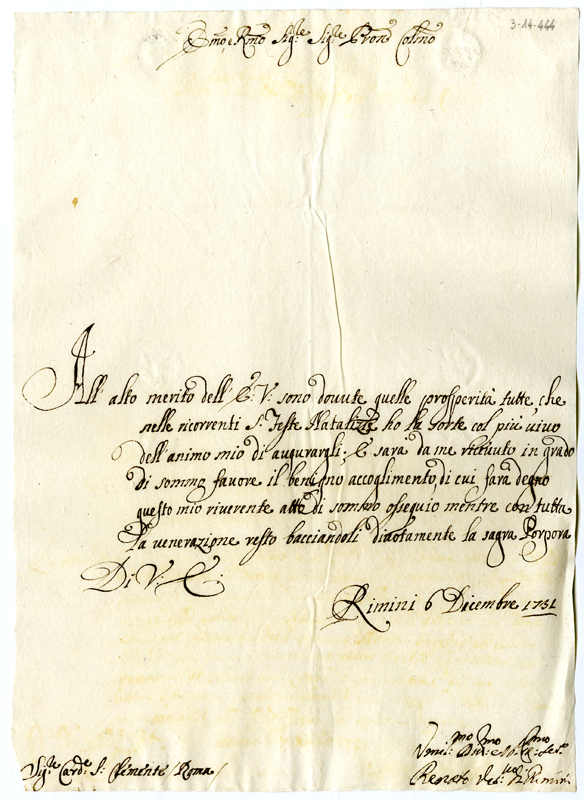 3-14-444
Emo, e Rmo Sigre Sigre Pron Colmo
All' alto merito dell' E. V. sono dovute quelle prosperità tutte che
nelle ricorrenti S. Feste Natalizie ho la sorte col più vivo
dell' animo mio di augurargli; E sarà da me ricevuto in grado
di sommo favore il benigno accoglimento, di cui farà degno
questo mio riverente atto di sommo ossequio mentre con tutta
la venerazione resto bacciandoli divotamente la sagra Porpora
Di V. E.
Rimini 6 Decembre 1731
Sigre Carde S. Clemente / Roma /
Renato Ves.o di Rimini